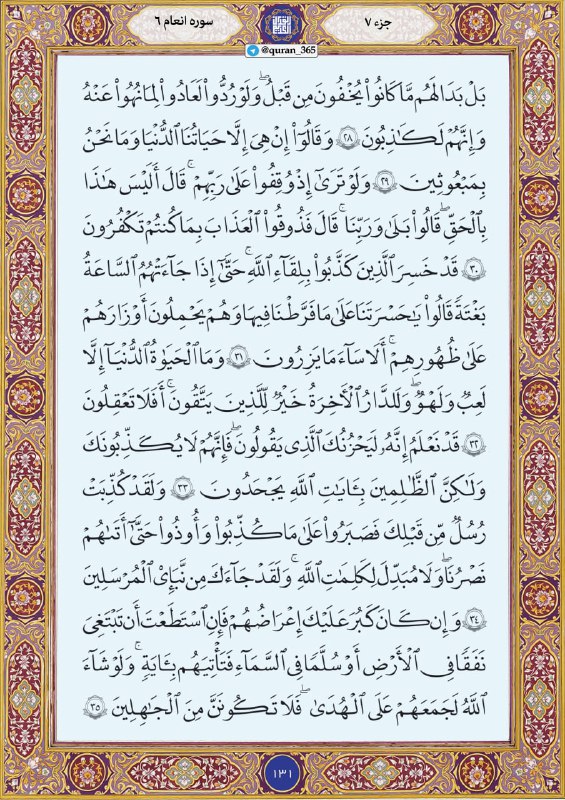 جزء ۷
سوره انعام ۶
@quran_365
بَلْ بَدَا لَهُم مَّا كَانُوا۟ يُخْفُونَ مِن قَبْلُ ۖ وَلَوْ رُدُّوا۟ لَعَادُوا۟ لِمَا نُهُوا۟ عَنْهُ
وَإِنَّهُمْ لَكَـٰذِبُونَ ۝٢٨ وَقَالُوٓا۟ إِنْ هِىَ إِلَّا حَيَاتُنَا ٱلدُّنْيَا وَمَا نَحْنُ
بِمَبْعُوثِينَ ۝٢٩ وَلَوْ تَرَىٰٓ إِذْ وُقِفُوا۟ عَلَىٰ رَبِّهِمْ ۚ قَالَ أَلَيْسَ هَـٰذَا
بِٱلْحَقِّ ۚ قَالُوا۟ بَلَىٰ وَرَبِّنَا ۚ قَالَ فَذُوقُوا۟ ٱلْعَذَابَ بِمَا كُنتُمْ تَكْفُرُونَ
۝٣٠ قَدْ خَسِرَ ٱلَّذِينَ كَذَّبُوا۟ بِلِقَآءِ ٱللَّهِ ۖ حَتَّىٰٓ إِذَا جَآءَتْهُمُ ٱلسَّاعَةُ
بَغْتَةً قَالُوا۟ يَـٰحَسْرَتَنَا عَلَىٰ مَا فَرَّطْنَا فِيهَا وَهُمْ يَحْمِلُونَ أَوْزَارَهُمْ
عَلَىٰ ظُهُورِهِمْ ۚ أَلَا سَآءَ مَا يَزِرُونَ ۝٣١ وَمَا ٱلْحَيَوٰةُ ٱلدُّنْيَآ إِلَّا
لَعِبٌ وَلَهْوٌ ۖ وَلَلدَّارُ ٱلْـَٔاخِرَةُ خَيْرٌ لِّلَّذِينَ يَتَّقُونَ ۗ أَفَلَا تَعْقِلُونَ
۝٣٢ قَدْ نَعْلَمُ إِنَّهُۥ لَيَحْزُنُكَ ٱلَّذِى يَقُولُونَ ۖ فَإِنَّهُمْ لَا يُكَذِّبُونَكَ
وَلَـٰكِنَّ ٱلظَّـٰلِمِينَ بِـَٔايَـٰتِ ٱللَّهِ يَجْحَدُونَ ۝٣٣ وَلَقَدْ كُذِّبَتْ
رُسُلٌ مِّن قَبْلِكَ فَصَبَرُوا۟ عَلَىٰ مَا كُذِّبُوا۟ وَأُوذُوا۟ حَتَّىٰٓ أَتَىٰهُمْ
نَصْرُنَا ۚ وَلَا مُبَدِّلَ لِكَلِمَـٰتِ ٱللَّهِ ۚ وَلَقَدْ جَآءَكَ مِن نَّبَإِى۟ ٱلْمُرْسَلِينَ
۝٣٤ وَإِن كَانَ كَبُرَ عَلَيْكَ إِعْرَاضُهُمْ فَإِنِ ٱسْتَطَعْتَ أَن تَبْتَغِىَ
نَفَقًا فِى ٱلْأَرْضِ أَوْ سُلَّمًا فِى ٱلسَّمَآءِ فَتَأْتِيَهُم بِـَٔايَةٍ ۚ وَلَوْ شَآءَ
ٱللَّهُ لَجَمَعَهُمْ عَلَى ٱلْهُدَىٰ ۚ فَلَا تَكُونَنَّ مِنَ ٱلْجَـٰهِلِينَ ۝٣٥
١٣١